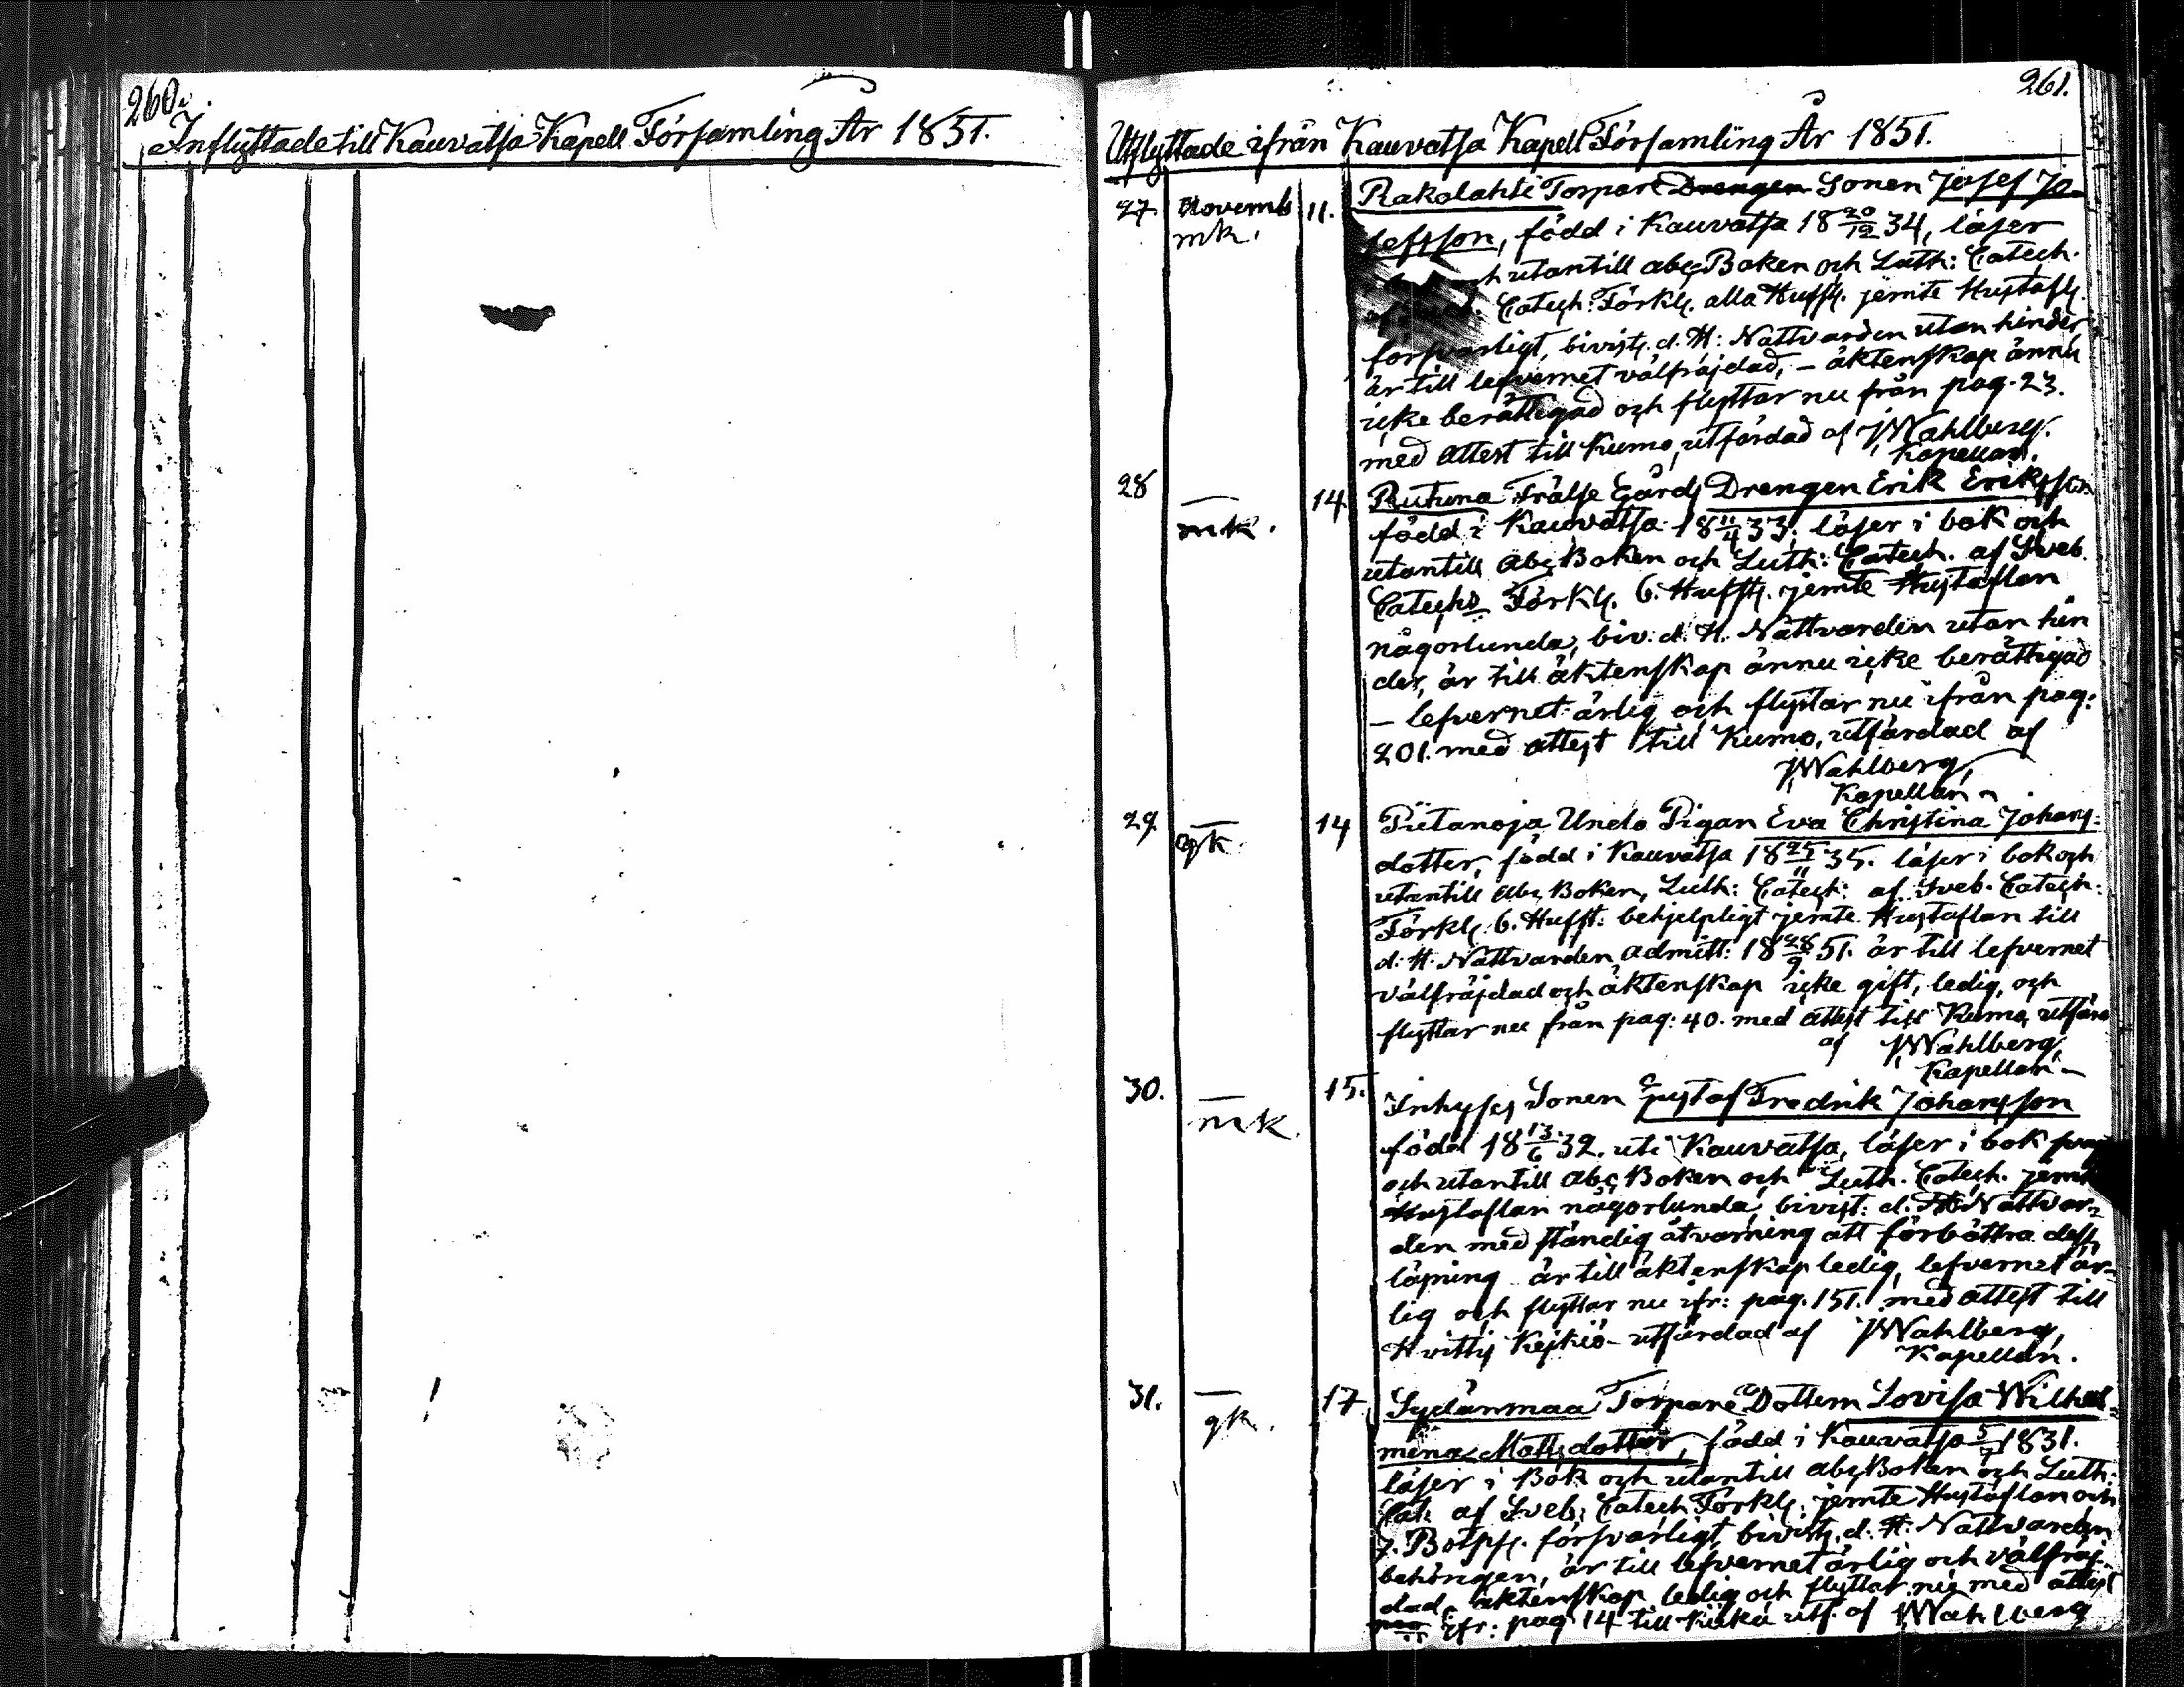 260.
Inflyttade till Kauvatsa Kapell Församling År 1851.
261.
Utflyttade ifrån Kauvatsa Kapell Församling År 1851.
27. Novemb mk. 11. Rakolahti Torpare Drengen Sonen Josef Jo-
sefsson, född i Kauvatsa 18 20/12 34, läser
utantill abc Boken och Luth: Catech.
Catech: Förkl. alla Huffst. jemte Hustafl.
försvarligt, bivist. d. H: Nattvarden utan hinder,
är till lefvernet välfräjdad, – äktenskap ännu
icke berättigad och flyttar nu från pag. 23.
med Attest till Kumo, utfärdad af JWahlberg.
Kapellan.
28 — mk. 14. Rutuna Frälse Gårds Drengen Erik Eriksson
född i Kauvatsa 18 11/4 33. läser i bok och
utantill Abc Boken och Luth: Catech. af Sveb.
Catechs Förkl. 6. Huffst. jemte Hustaflan
någorlunda, biv: d. H. Nattvarden utan hin
der, är till äktenskap ännu icke berättigad
– lefvernet ärlig och flyttar nu ifrån pag:
201. med attest till Kumo, utfärdad af
JWahlberg,
Kapellan
29. — qk. 14 Pietanoja Undo Pigan Eva Christina Johans-
dotter, född i Kauvatsa 18 25/11 35. läser i bok och
utantill Abc Boken, Luth: Catech: af Sveb. Catech:
Förkl. 6. Huffst: behjelpligt jemte Hustaflan till
d: H. Nattvarden Admitt: 18 28/9 51. är till lefvernet
välfräjdad och äktenskap icke gift, ledig, och
flyttar nu från pag: 40. med Attest till Kumo utfärd
af JWahlberg,
Kapellan –
30. — mk. 15. Inhyses Sonen Gustaf Fredrik Johansson
född 18 13/6 32. uti Kauvatsa, läser i bok
och utantill Abc Boken och Luth. Catech. jemte
Hustaflan någorlunda, bivist: d. H. Nattvar-
den med ständig åtvarning att förbättra dess
läsning är till äktenskap ledig, lefvernet är-
lig och flyttar nu ifr: pag. 151. med Attest till
Hvittis Kejkiö utfärdad af JWahlberg,
Kapellan.
31. — qk. 17 Sydänmaa Torpare Dottern Lovisa Wilhel-
mina Mattsdotter, född i Kauvatsa 1831.
läser i Bok och utantill abc Boken och Luth:
Cat: af Sveb: Catech Förkl: jemte Hustaflan och
7. Botps. försvarligt, bivist. d. H: Nattvarden
behörigen, är till lefvernet ärlig och välfräj-
dad, äktenskap ledig och flyttar nu med attest
ifr: pag 14 till Kiika utf. af JWahlberg